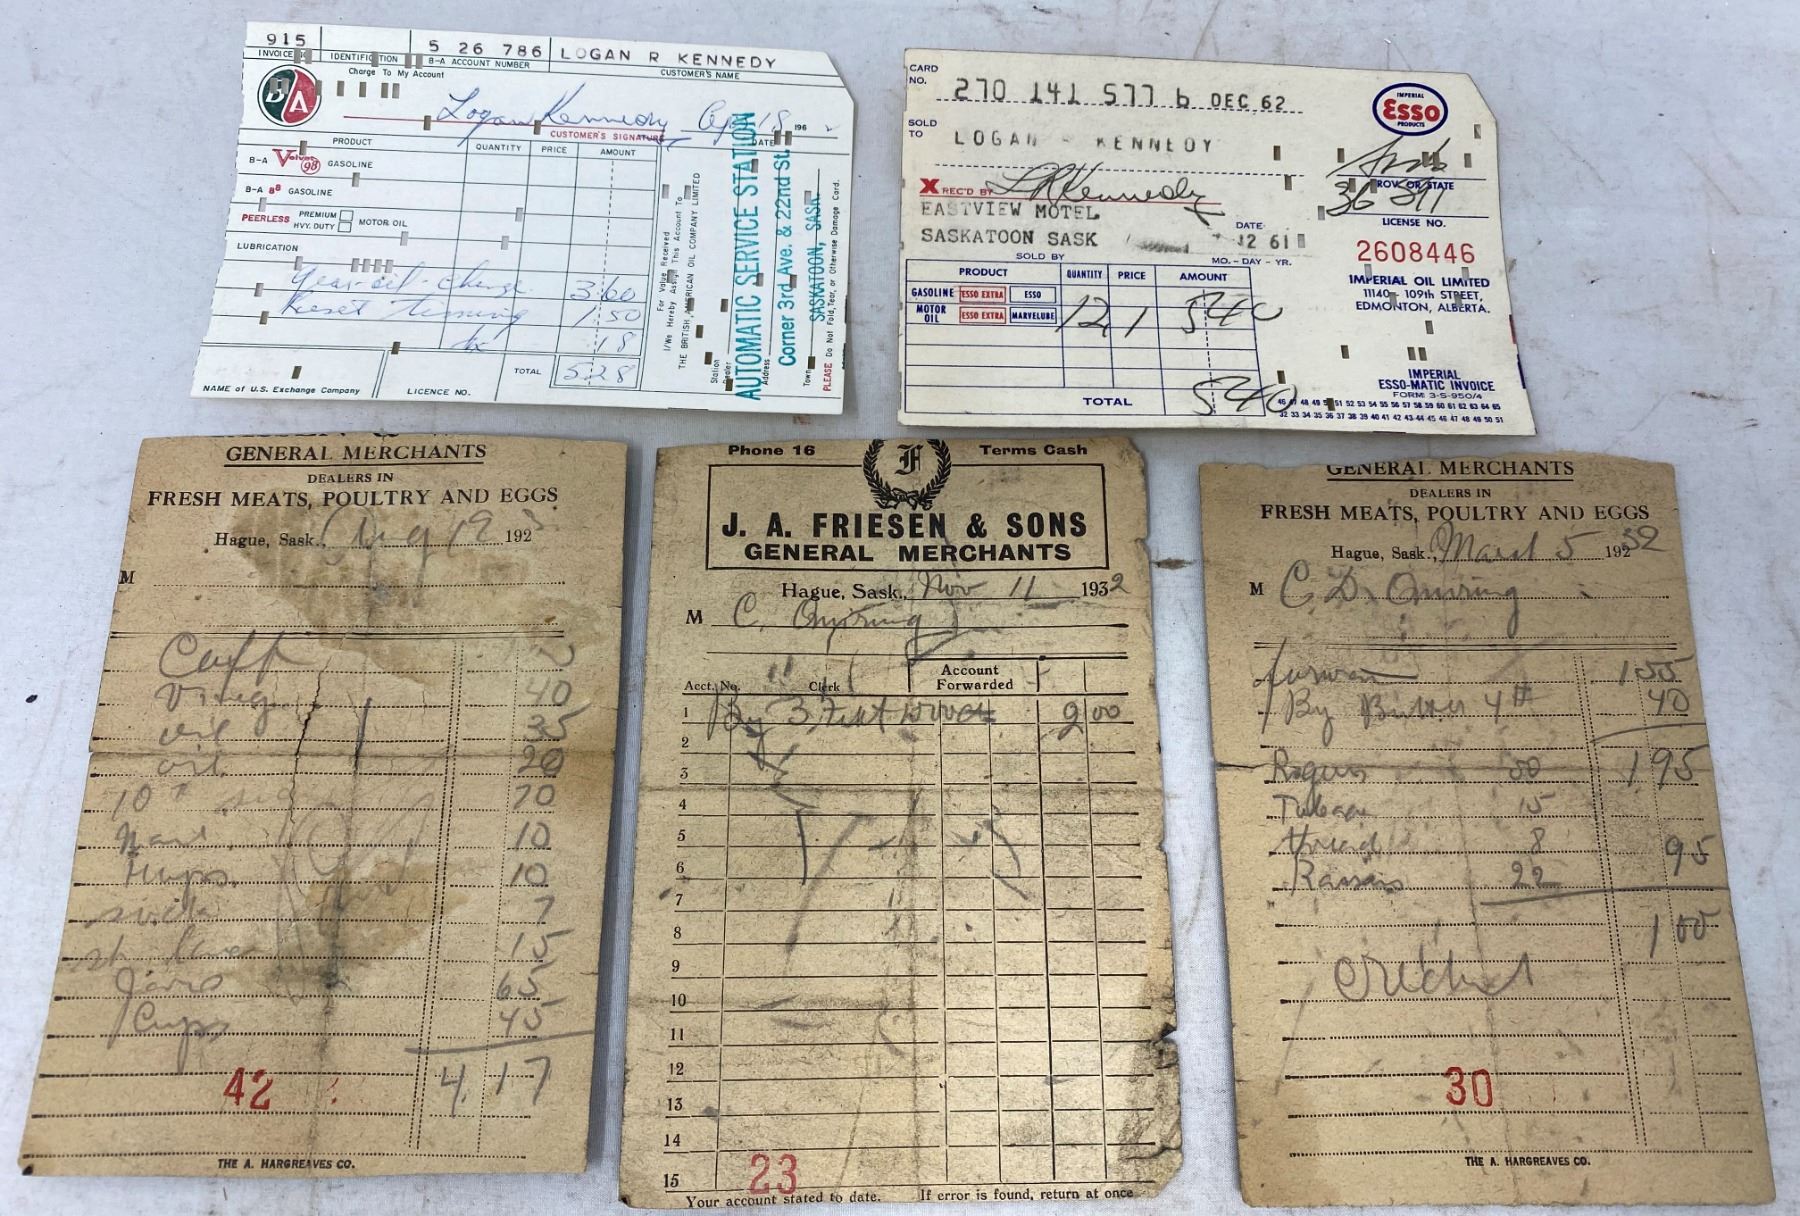 915 5 26 786 LOGAN R KENNEDY
INVOICE IDENTIFICATION B-A ACCOUNT NUMBER CUSTOMER'S NAME
Charge To My Account
BA
Logan Kennedy Ap 18 196
CUSTOMER'S SIGNATURE DATE
PRODUCT QUANTITY PRICE AMOUNT
B-A Velvet 98 GASOLINE
B-A 88 GASOLINE
PEERLESS PREMIUM HVY. DUTY MOTOR OIL
LUBRICATION
gear oil - change 3.60
Reset timing 1 50
tx 18
TOTAL 5.28
NAME of U.S. Exchange Company LICENCE NO.
For Value Received
I/We Hereby Assign This Account To
THE BRITISH AMERICAN OIL COMPANY LIMITED
Station
Dealer
AUTOMATIC SERVICE STATION
Address
Corner 3rd Ave. & 22nd St.
Town
SASKATOON, SASK.
PLEASE Do Not Fold, Tear, or Otherwise Damage Card.
CARD NO. 270 141 577 6 DEC 62
IMPERIAL
ESSO
PRODUCTS
SOLD TO LOGAN - KENNEDY
X REC'D BY L R Kennedy
PROV. OR STATE
LICENSE NO.
EASTVIEW MOTEL
SASKATOON SASK
DATE
12 61
SOLD BY MO. - DAY - YR.
2608446
IMPERIAL OIL LIMITED
11140 - 109th STREET,
EDMONTON, ALBERTA.
PRODUCT QUANTITY PRICE AMOUNT
GASOLINE ESSO EXTRA ESSO
MOTOR OIL ESSO EXTRA MARVELUBE 12 1 540
TOTAL 540
IMPERIAL
ESSO-MATIC INVOICE
FORM 3-S-950/4
46 47 48 49 50 51 52 53 54 55 56 57 58 59 60 61 62 63 64 65
32 33 34 35 36 37 38 39 40 41 42 43 44 45 46 47 48 49 50 51
GENERAL MERCHANTS
DEALERS IN
FRESH MEATS, POULTRY AND EGGS
Hague, Sask., Aug 19 192
M
Vineg 40
oil 35
oil 20
70
10
10
7
15
Jars 65
Cups 45
4.17
42
THE A. HARGREAVES CO.
Phone 16 F Terms Cash
J. A. FRIESEN & SONS
GENERAL MERCHANTS
Hague, Sask., Nov 11 1932
M C.
Acct. No. Clerk Account Forwarded
1 By 3 Feet wood 9 00
2
3
4
5
6
7
8
9
10
11
12
13
14
15
23
Your account stated to date. If error is found, return at once
GENERAL MERCHANTS
DEALERS IN
FRESH MEATS, POULTRY AND EGGS
Hague, Sask., March 5 192 32
M C. D.
155
By Butter 4# 40
Rogers 50 195
15
thread 8 95
Raisins 22
100
Credit
30
THE A. HARGREAVES CO.